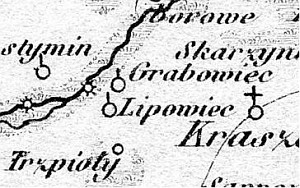 Borowe
Skarzyn
stymin
Grabowiec
Lipowiec
Krasz
Trzpioty